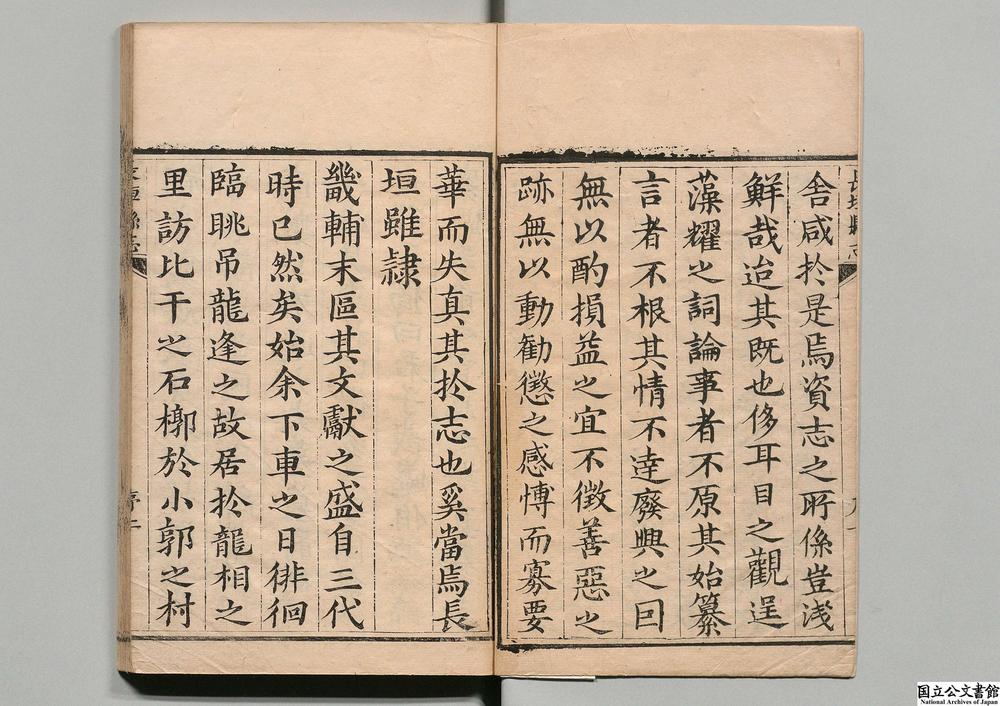 舎咸於是焉資志之所係豈淺
鮮哉迨其既也侈耳目之觀逞
藻耀之詞論事者不原其始纂
言者不根其情不達廢興之因
無以酌損益之宜不徵善惡之
跡無以動勸懲之感愽而寡要
華而失真其扵志也奚當焉長
垣雖隷
畿輔末區其文獻之盛自三代
時已然矣始余下車之日徘徊
臨眺吊龍逄之故居扵龍相之
里訪比干之石槨於小郭之村
長垣縣志
序二
国立公文書館
National Archives of Japan